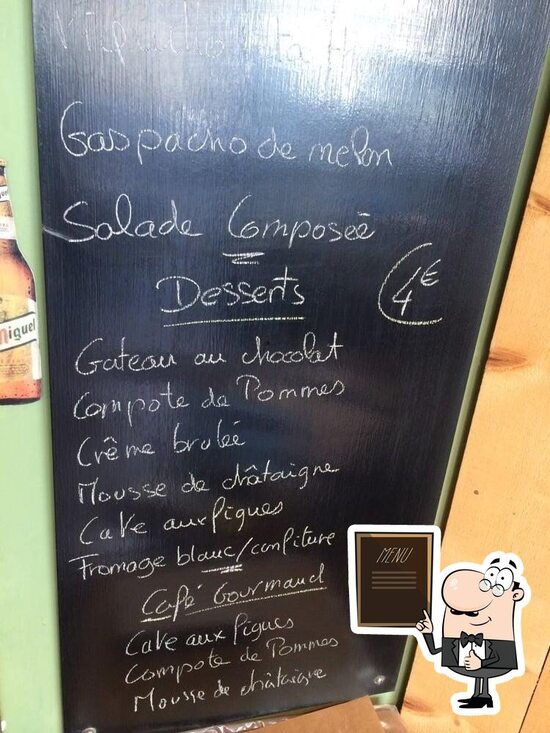 Gaspacho de melon
Salade Composée
Desserts
4€
Gateau au chocolat
Compote de Pommes
Crême brulée
Mousse de châtaigne
Cake aux figues
Fromage blanc/confiture
Café Gourmand
Cake aux figues
Compote de Pommes
Mousse de châtaigne
Miguel
MENU